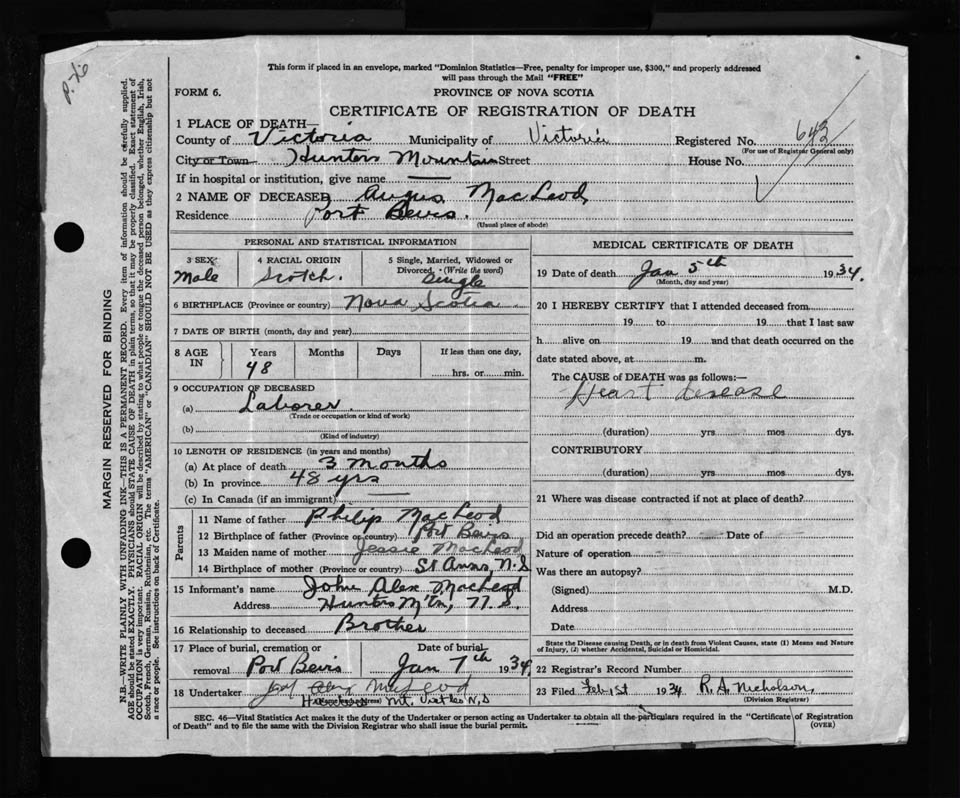 P.76
This form if placed in an envelope, marked "Dominion Statistics—Free, penalty for improper use, $300," and properly addressed
will pass through the Mail "FREE"
FORM 6.
PROVINCE OF NOVA SCOTIA
CERTIFICATE OF REGISTRATION OF DEATH
1 PLACE OF DEATH—
County of Victoria Municipality of Victoria Registered No. 643
(For use of Registrar General only)
City or Town Hunters Mountain Street House No.
If in hospital or institution, give name —
2 NAME OF DECEASED Angus MacLeod
Residence Port Bevis.
(Usual place of abode)
PERSONAL AND STATISTICAL INFORMATION
3 SEX 4 RACIAL ORIGIN 5 Single, Married, Widowed or
Divorced, (Write the word)
Male Scotch. Single
6 BIRTHPLACE (Province or country) Nova Scotia
7 DATE OF BIRTH (month, day and year)
8 AGE IN Years Months Days If less than one day,
48 hrs. or min.
9 OCCUPATION OF DECEASED
(a) Laborer.
(Trade or occupation or kind of work)
(b)
(Kind of industry)
10 LENGTH OF RESIDENCE (in years and months)
(a) At place of death 3 months
(b) In province 48 yrs
(c) In Canada (if an immigrant) —
Parents
11 Name of father Philip MacLeod
12 Birthplace of father (Province or country) Port Bevis
13 Maiden name of mother Jessie MacLeod
14 Birthplace of mother (Province or country) St Anns, N.S
15 Informant's name John Alex MacLeod
Address Hunters M'tn, N.S.
16 Relationship to deceased Brother
17 Place of burial, cremation or Date of burial
removal Port Bevis Jan 7th 1934
18 Undertaker Alex McLeod
(Address) Mt. Vict Co N.S
MEDICAL CERTIFICATE OF DEATH
19 Date of death Jan 5th 1934.
(Month, day and year)
20 I HEREBY CERTIFY that I attended deceased from
19 to 19 that I last saw
h alive on 19 and that death occurred on the
date stated above, at m.
The CAUSE of DEATH was as follows:—
Heart disease
(duration) yrs mos dys.
CONTRIBUTORY
(duration) yrs mos dys.
21 Where was disease contracted if not at place of death?
Did an operation precede death? Date of
Nature of operation
Was there an autopsy?
(Signed) M.D.
Address
Date
State the Disease causing Death, or in death from Violent Causes, state (1) Means and Nature
of Injury, (2) whether Accidental, Suicidal or Homicidal.
22 Registrar's Record Number
23 Filed Feb 1st 1934 R. A. Nicholson
(Division Registrar)
SEC. 46—Vital Statistics Act makes it the duty of the Undertaker or person acting as Undertaker to obtain all the particulars required in the "Certificate of Registration
of Death" and to file the same with the Division Registrar who shall issue the burial permit.
(OVER)
MARGIN RESERVED FOR BINDING
N.B.—WRITE PLAINLY WITH UNFADING INK—THIS IS A PERMANENT RECORD. Every item of information should be carefully supplied.
AGE should be stated EXACTLY. PHYSICIANS should STATE CAUSE OF DEATH in plain terms, so that it may be properly classified. Exact statement of
OCCUPATION is very important. RACIAL ORIGIN will be described by stating to what people or tongue the deceased person belonged, whether English, Irish,
Scotch, French, German, Russian, Ruthenian, etc. The terms "AMERICAN" or "CANADIAN" SHOULD NOT BE USED as they express citizenship but not
a race or people. See instructions on back of Certificate.